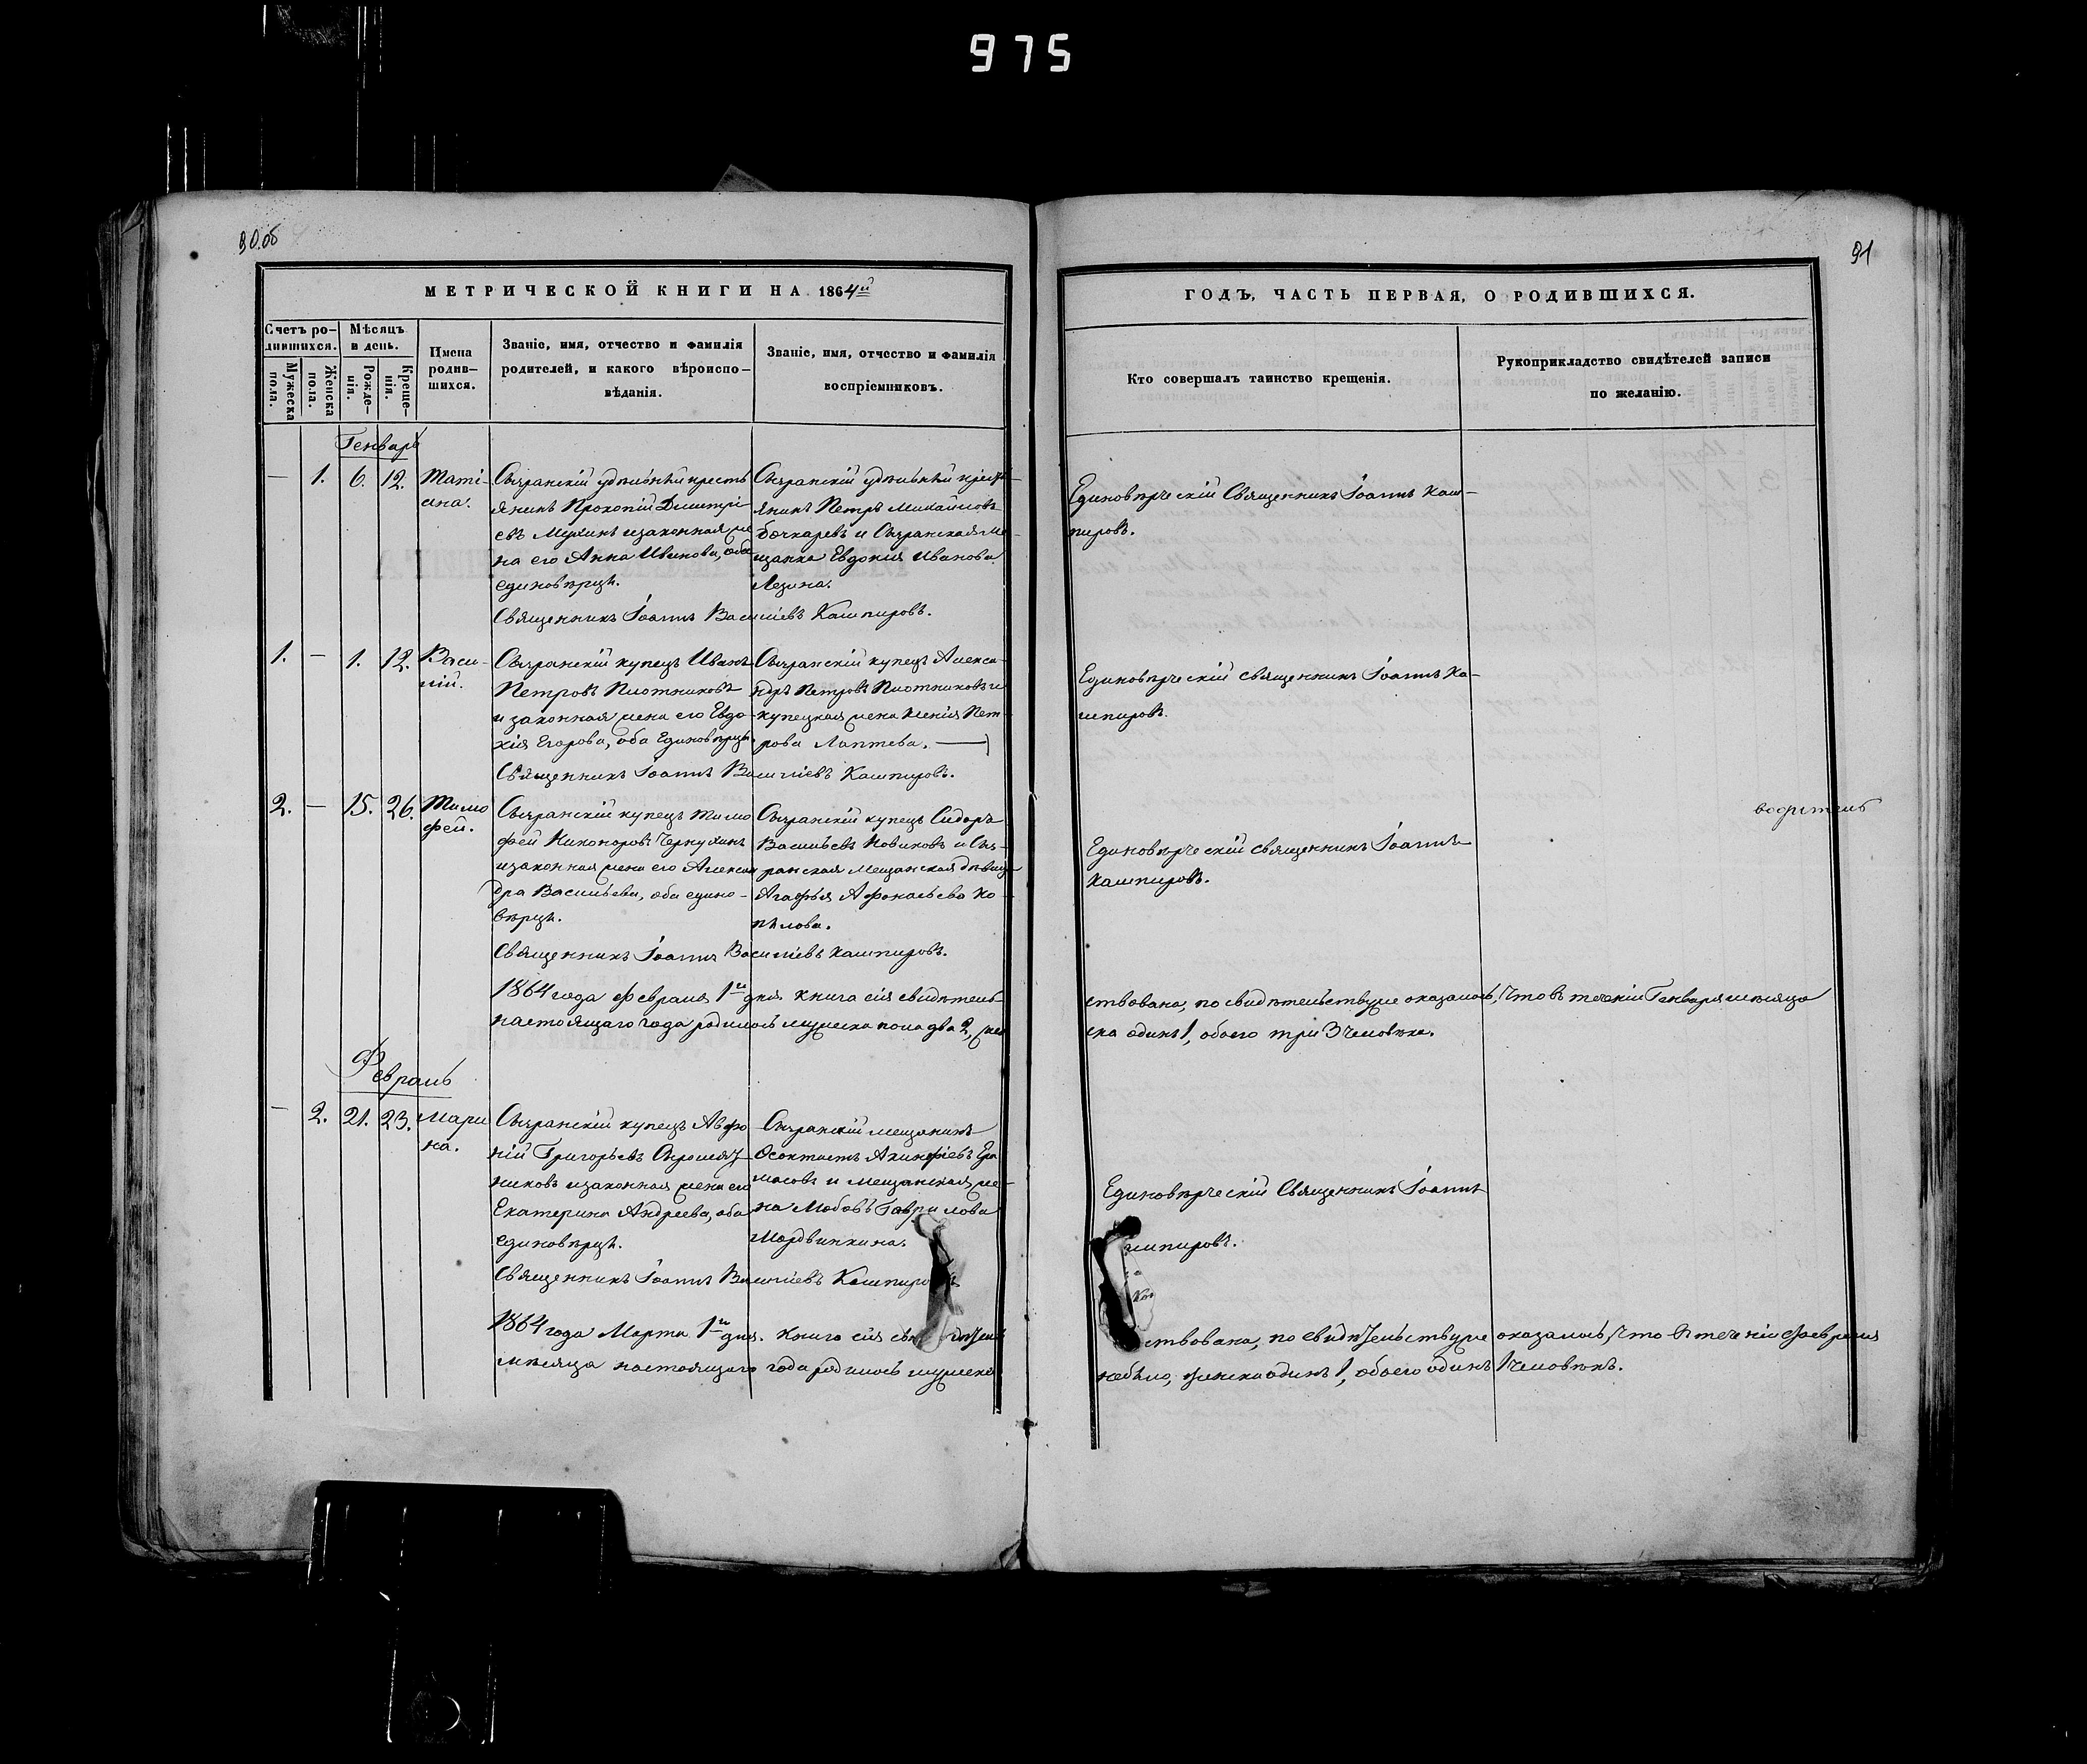 975
90.об
91
МЕТРИЧЕСКОЙ КНИГИ НА 1864й
ГОДЪ, ЧАСТЬ ПЕРВАЯ, О РОДИВШИХСЯ.
Счетъ ро-
дившихся.
Мужеска
пола.
Женска
пола.
Мѣсяцъ
и день.
Рожде-
нія.
Креще-
нія.
Имена
родив-
шихся.
Званіе, имя, отчество и фамилія
родителей, и какого вѣроиспо-
вѣданія.
Званіе, имя, отчество и фамилія
воспріемниковъ.
Кто совершалъ таинство крещенія.
Рукоприкладство свидѣтелей записи
по желанію.
Генварь
— 1. 6. 12. Таті-
ана.
Сызранскій удѣльный кресть
янинъ Прокопій Димитрі-
евъ Мулинъ и законная же
на его Анна Иванова, оба
единовѣрцы.
Сызранскій удѣльный кресть
янинъ Петръ Михайловъ
Бочкаревъ и Сызранская ме-
щанка Евдокія Иванова
Лезина.
Единовѣрческій Священникъ Іоаннъ Каш-
пировъ.
Священникъ Іоаннъ Васильевъ Кашпировъ.
1. — 1. 12. Васи-
лій.
Сызранскій купецъ Иванъ
Петровъ Плотниковъ
и законная жена его Евдо-
кія Егорова, оба Единовѣрцы.
Сызранскій купецъ Алекса-
ндръ Петровъ Плотниковъ и
купецкая жена Ксенія Пет-
рова Лаптева.
Единовѣрческій священникъ Іоаннъ Ка-
шпировъ.
Священникъ Іоаннъ Васильевъ Кашпировъ.
2. — 15. 26. Тимо
фей.
Сызранскій купецъ Тимо
фей Никоноровъ Чернухинъ
и законная жена его Алексан
дра Васильева, оба едино-
вѣрцы.
Сызранскій купецъ Сидоръ
Васильевъ Новиковъ и Сыз-
ранская мещанская дѣвица
Агафья Афонасьева Ко-
пылова.
Единовѣрческій священникъ Іоаннъ
Кашпировъ.
Священникъ Іоаннъ Васильевъ Кашпировъ.
1864 года Февраля 1го дня. Книга сія свидѣтель-
ствована, по свидѣтельствуме оказалось, что въ теченіи Генваря мѣсяца
настоящаго года родилось мужеска пола два 2, жен
ска одинъ 1, обоего три 3 человѣка.
Февраль
— 2. 21. 23. Мари
на.
Сызранскій купецъ Афо
ній Григорьевъ
и законная жена его
Екатерина Андреева, оба
единовѣрцы.
Сызранскій мещанинъ
Феоктистъ
и мещанская же-
на Любовь Гаврилова
Мордвинкина.
Единовѣрческій Священникъ Іоаннъ
шпировъ.
Священникъ Іоаннъ Васильевъ Кашпировъ
1864 года Марта 1го дня. Книга сія свидѣтель
ствована, по свидѣтельствуме оказалось, что въ теченіи Февраля
мѣсяца настоящаго года родилось мужеска
небыло, женска одинъ 1, обоего одинъ 1 человѣкъ.